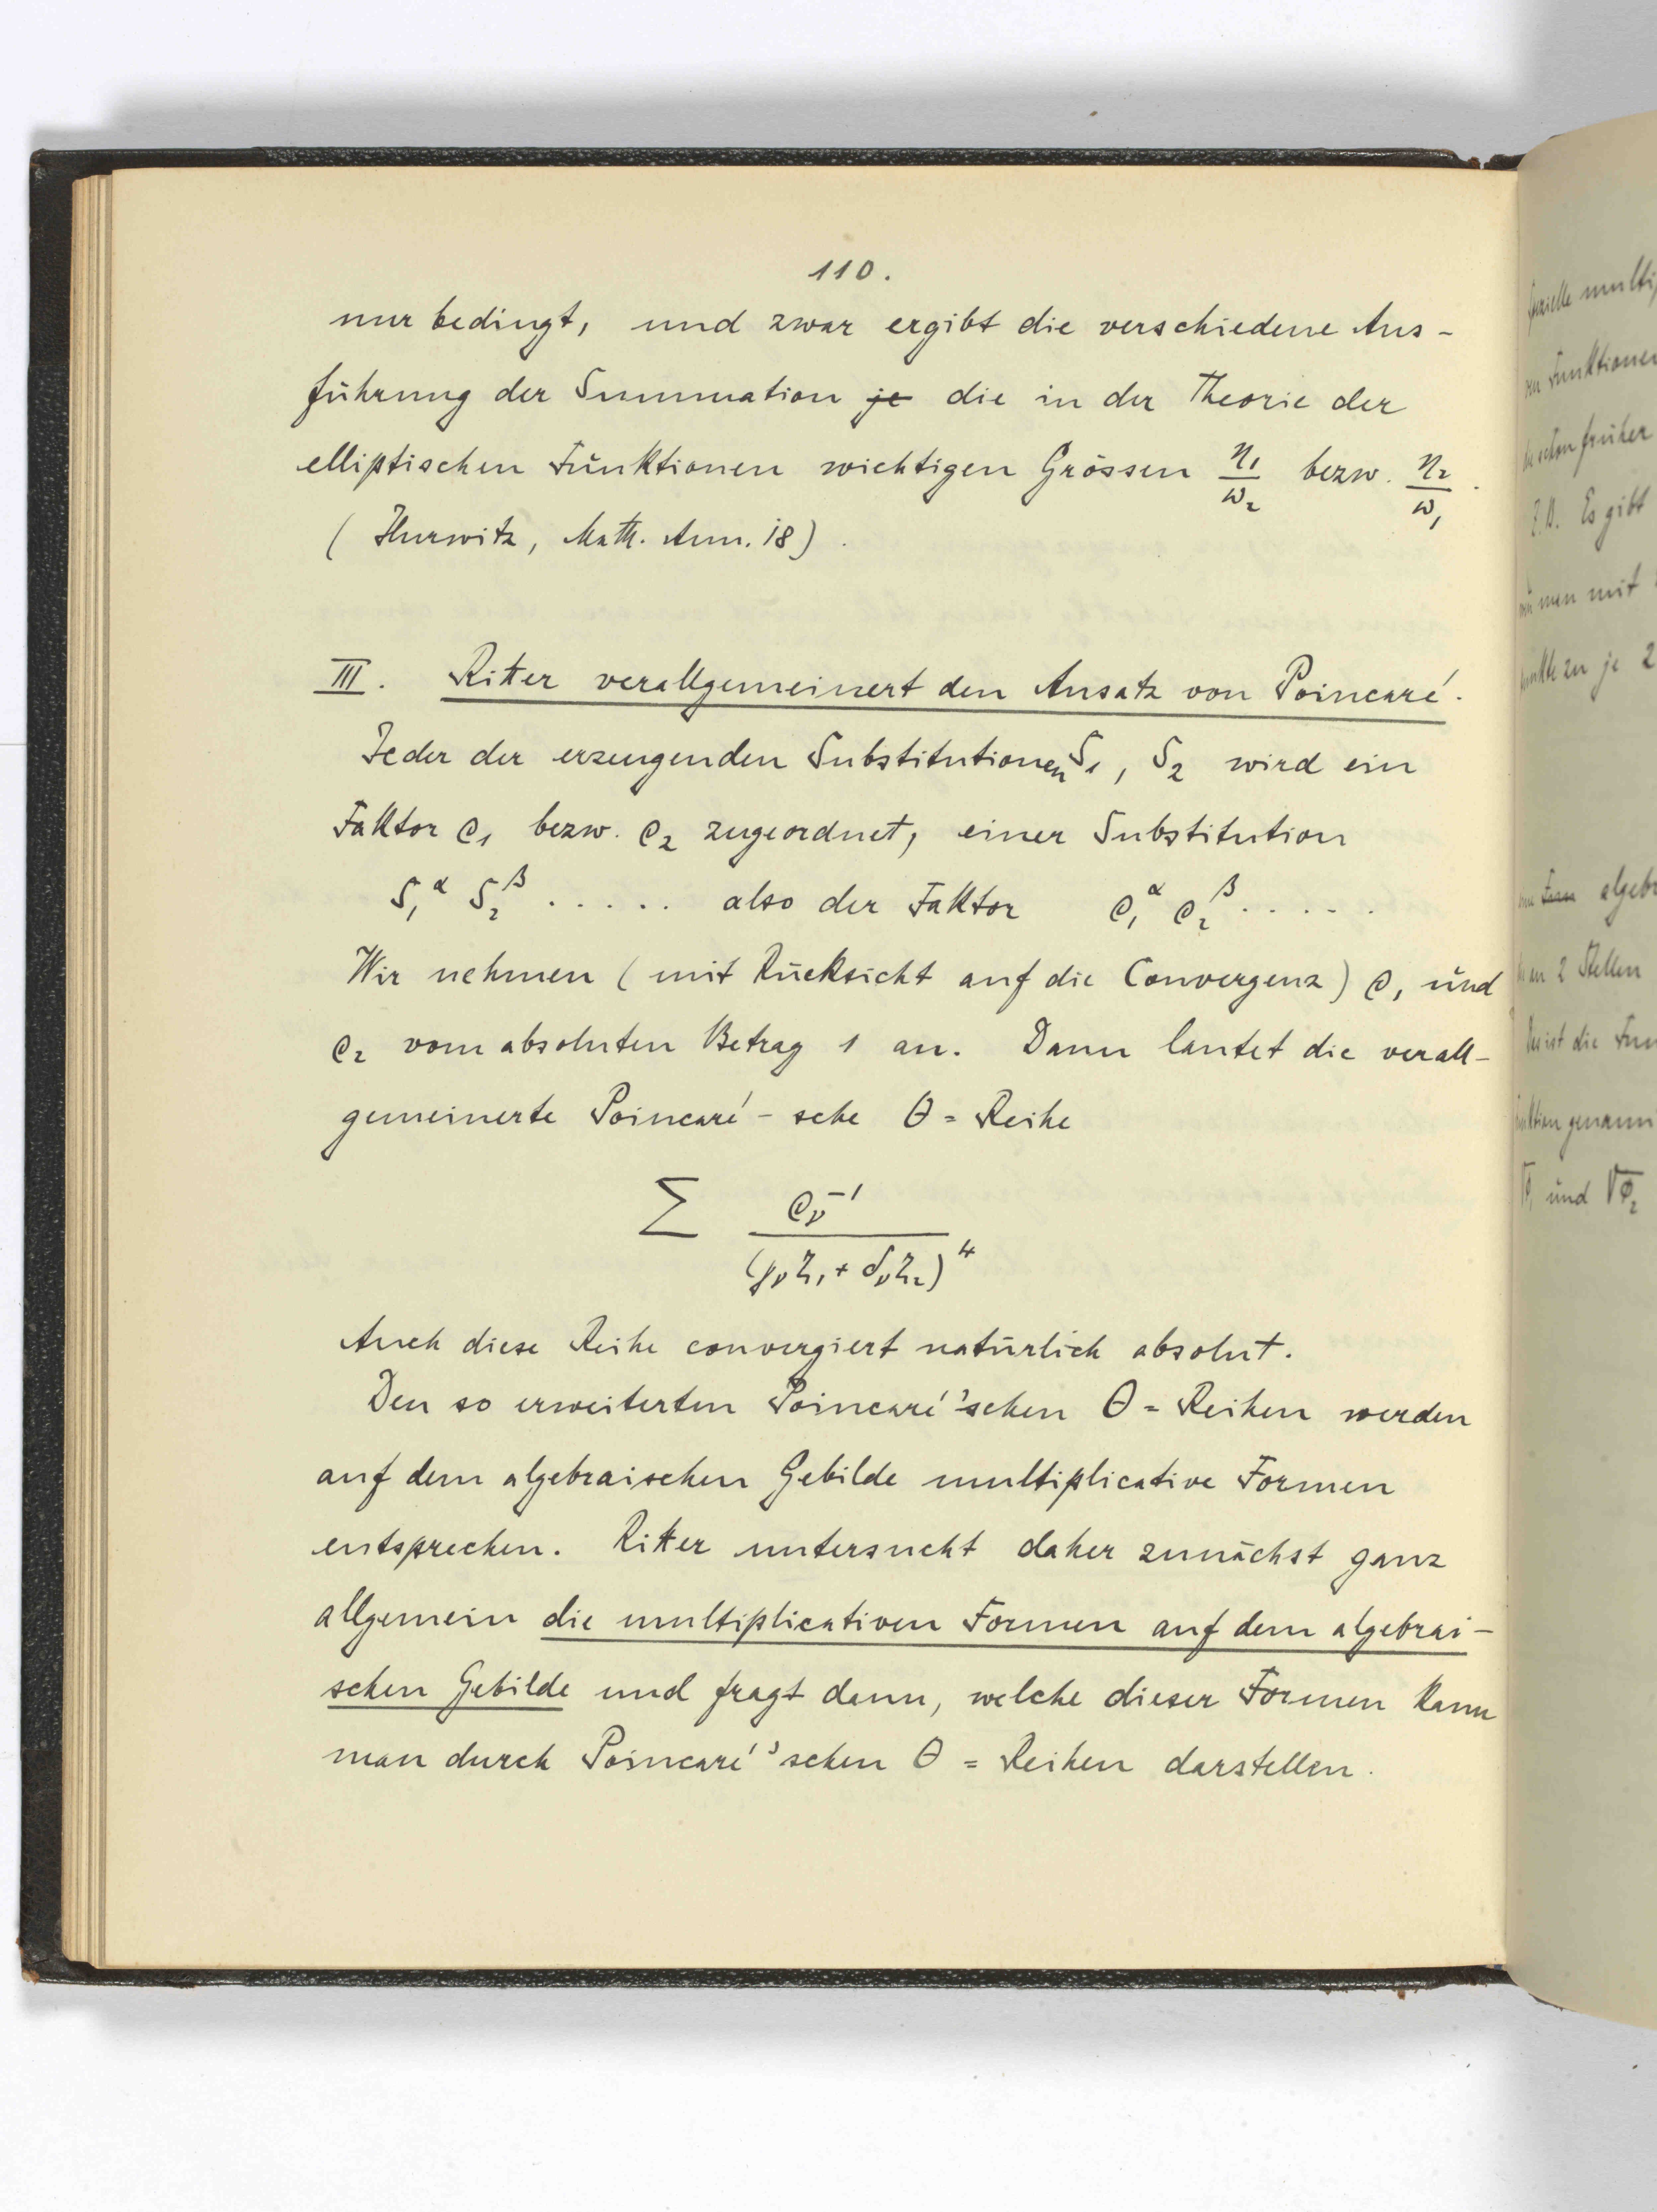 110.
nur bedingt, und zwar ergibt die verschiedene Aus-
führung der Summation je die in der Theorie der
elliptischen Funktionen wichtigen Grössen η₁/ω₂ bezw. η₂/ω₁.
(Hurwitz, Math. Ann. 18).
III. Ritter verallgemeinert den Ansatz von Poincaré.
Jeder der erzeugenden Substitutionen S₁, S₂ wird ein
Faktor ϱ₁ bezw. ϱ₂ zugeordnet, einer Substitution
S₁^α S₂^β ..... also der Faktor ϱ₁^α ϱ₂^β .....
Wir nehmen (mit Rücksicht auf die Convergenz) ϱ₁ und
ϱ₂ vom absoluten Betrag 1 an. Dann lautet die verall-
gemeinerte Poincaré-sche θ = Reihe
∑ ϱ_ν^-1 / (γ_ν z₁ + δ_ν z₂)^4
Auch diese Reihe convergiert natürlich absolut.
Den so erweiterten Poincaré'schen θ = Reihen werden
auf dem algebraischen Gebilde multiplicative Formen
entsprechen. Ritter untersucht daher zunächst ganz
allgemein die multiplicativen Formen auf dem algebrai-
schen Gebilde und fragt dann, welche dieser Formen kann
man durch Poincaré'schen θ = Reihen darstellen.
multi
Funktionen
schon früher
Z.B. Es gibt
men mit
zu je 2
algebr
an 2 Stellen
ist die Fun
genann
und √φ₂